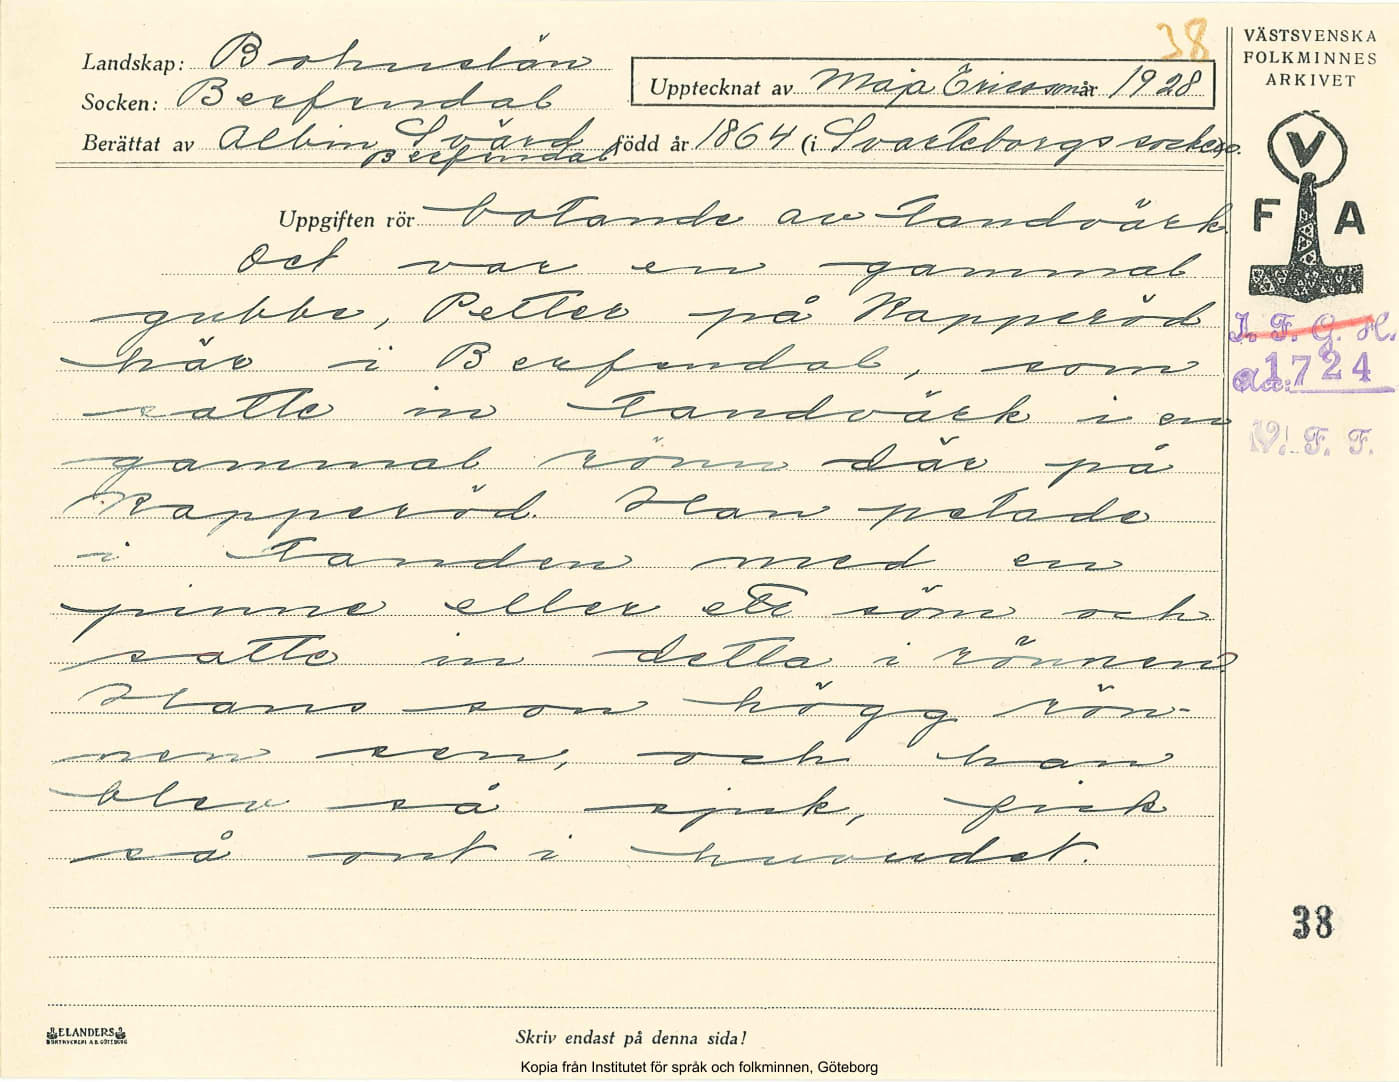 38
VÄSTSVENSKA
FOLKMINNES
ARKIVET
Landskap: Bohuslän
Socken: Berfendal
Upptecknat av Maja Ericsson år 1928
Berättat av Albin Svärd
Berfendal
född år 1864 (i Svarteborgs socken).
V
F A
Uppgiften rör botande av tandvärk.
Det var en gammal
gubbe, Petter på Rapperöd
här i Berfendal, som
satte in tandvärk i en
gammal rönn där på
Rapperöd. Han petade
i tanden med en
pinne eller ett söm och
satte in detta i rönnen.
Hans son högg rön-
nen sen, och han
blev så sjuk, fick
så ont i huvudet.
I. F. G. H.
1724
V. F. F.
38
ELANDERS
BOKTRYCKERI A.B. GÖTEBORG
Skriv endast på denna sida!
Kopia från Institutet för språk och folkminnen, Göteborg